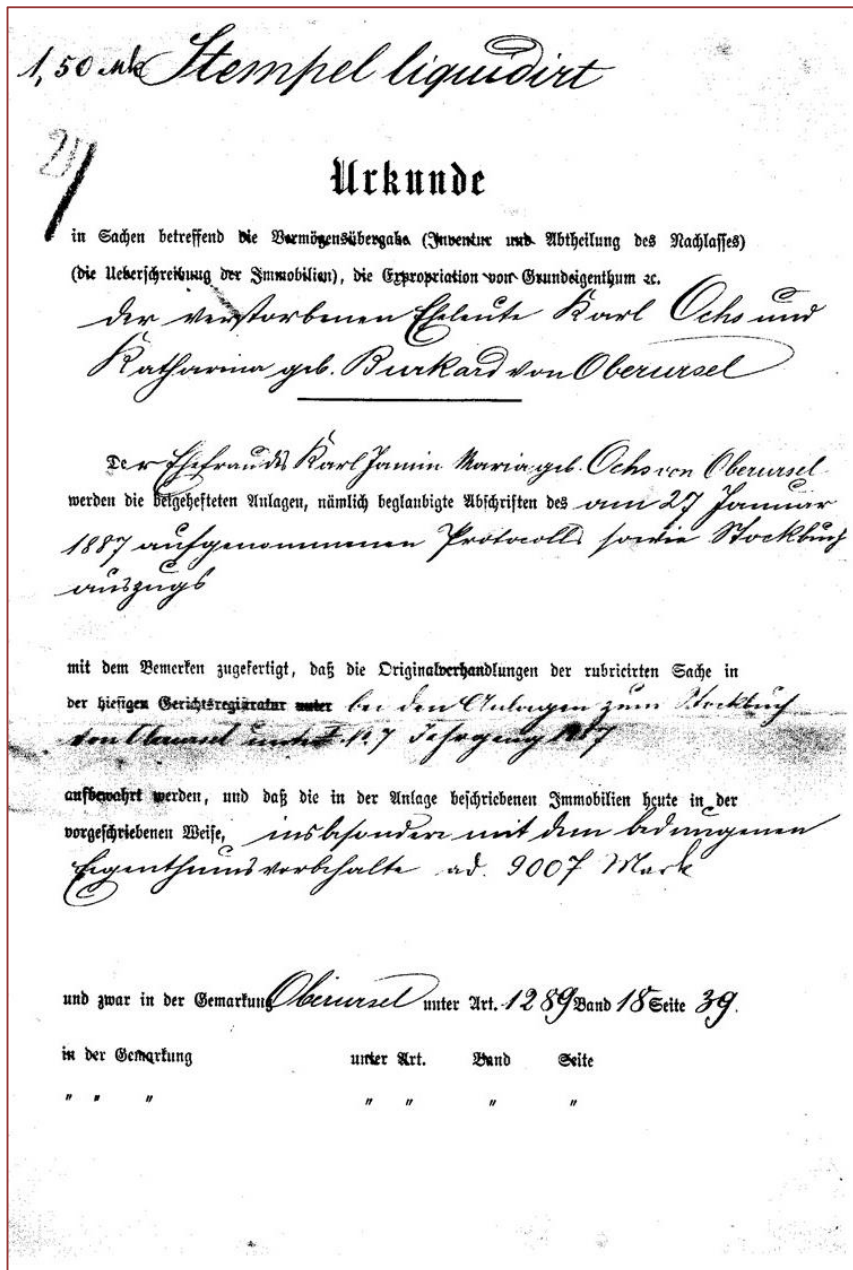 1,50 Mk Stempel liquidirt
Urkunde
in Sachen betreffend die Vermögensübergabe (Inventur und Abtheilung des Nachlasses)
(die Ueberschreibung der Immobilien), die Expropriation von Grundeigenthum ꝛc.
der verstorbenen Eheleute Karl Ochs und
Katharina geb. Burkard von Oberursel
Der Ehefrau des Karl Jamin Maria geb. Ochs von Oberursel
werden die beigehefteten Anlagen, nämlich beglaubigte Abschriften des am 27 Januar
1887 aufgenommenen Protocolls sowie Stockbuch
auszugs
mit dem Bemerken zugefertigt, daß die Originalverhandlungen der rubricirten Sache in
der hiesigen Gerichtsregistratur unter bei den Anlagen zum Stockbuch
von Oberursel unter 7 Jahrgang 1887
aufbewahrt werden, und daß die in der Anlage beschriebenen Immobilien heute in der
vorgeschriebenen Weise, insbesondere mit dem bedungenen
Eigenthumsvorbehalte ad. 9007 Mark
und zwar in der Gemarkung Oberursel unter Art. 1289 Band 18 Seite 39.
in der Gemarkung unter Art. Band Seite
" " " " " " "